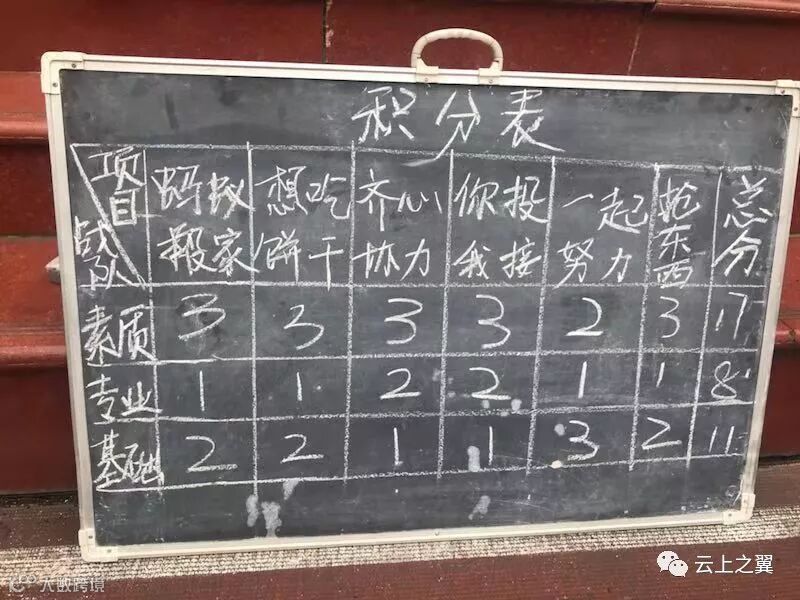 积分表
项目 蚂蚁搬家 想吃饼干 齐心协力 你投我接 一起努力 抢东西 总分
战队
素质 3 3 3 3 2 3 17
专业 1 1 2 2 1 1 8
基础 2 2 1 1 3 2 11
云上之翼
大数跨境